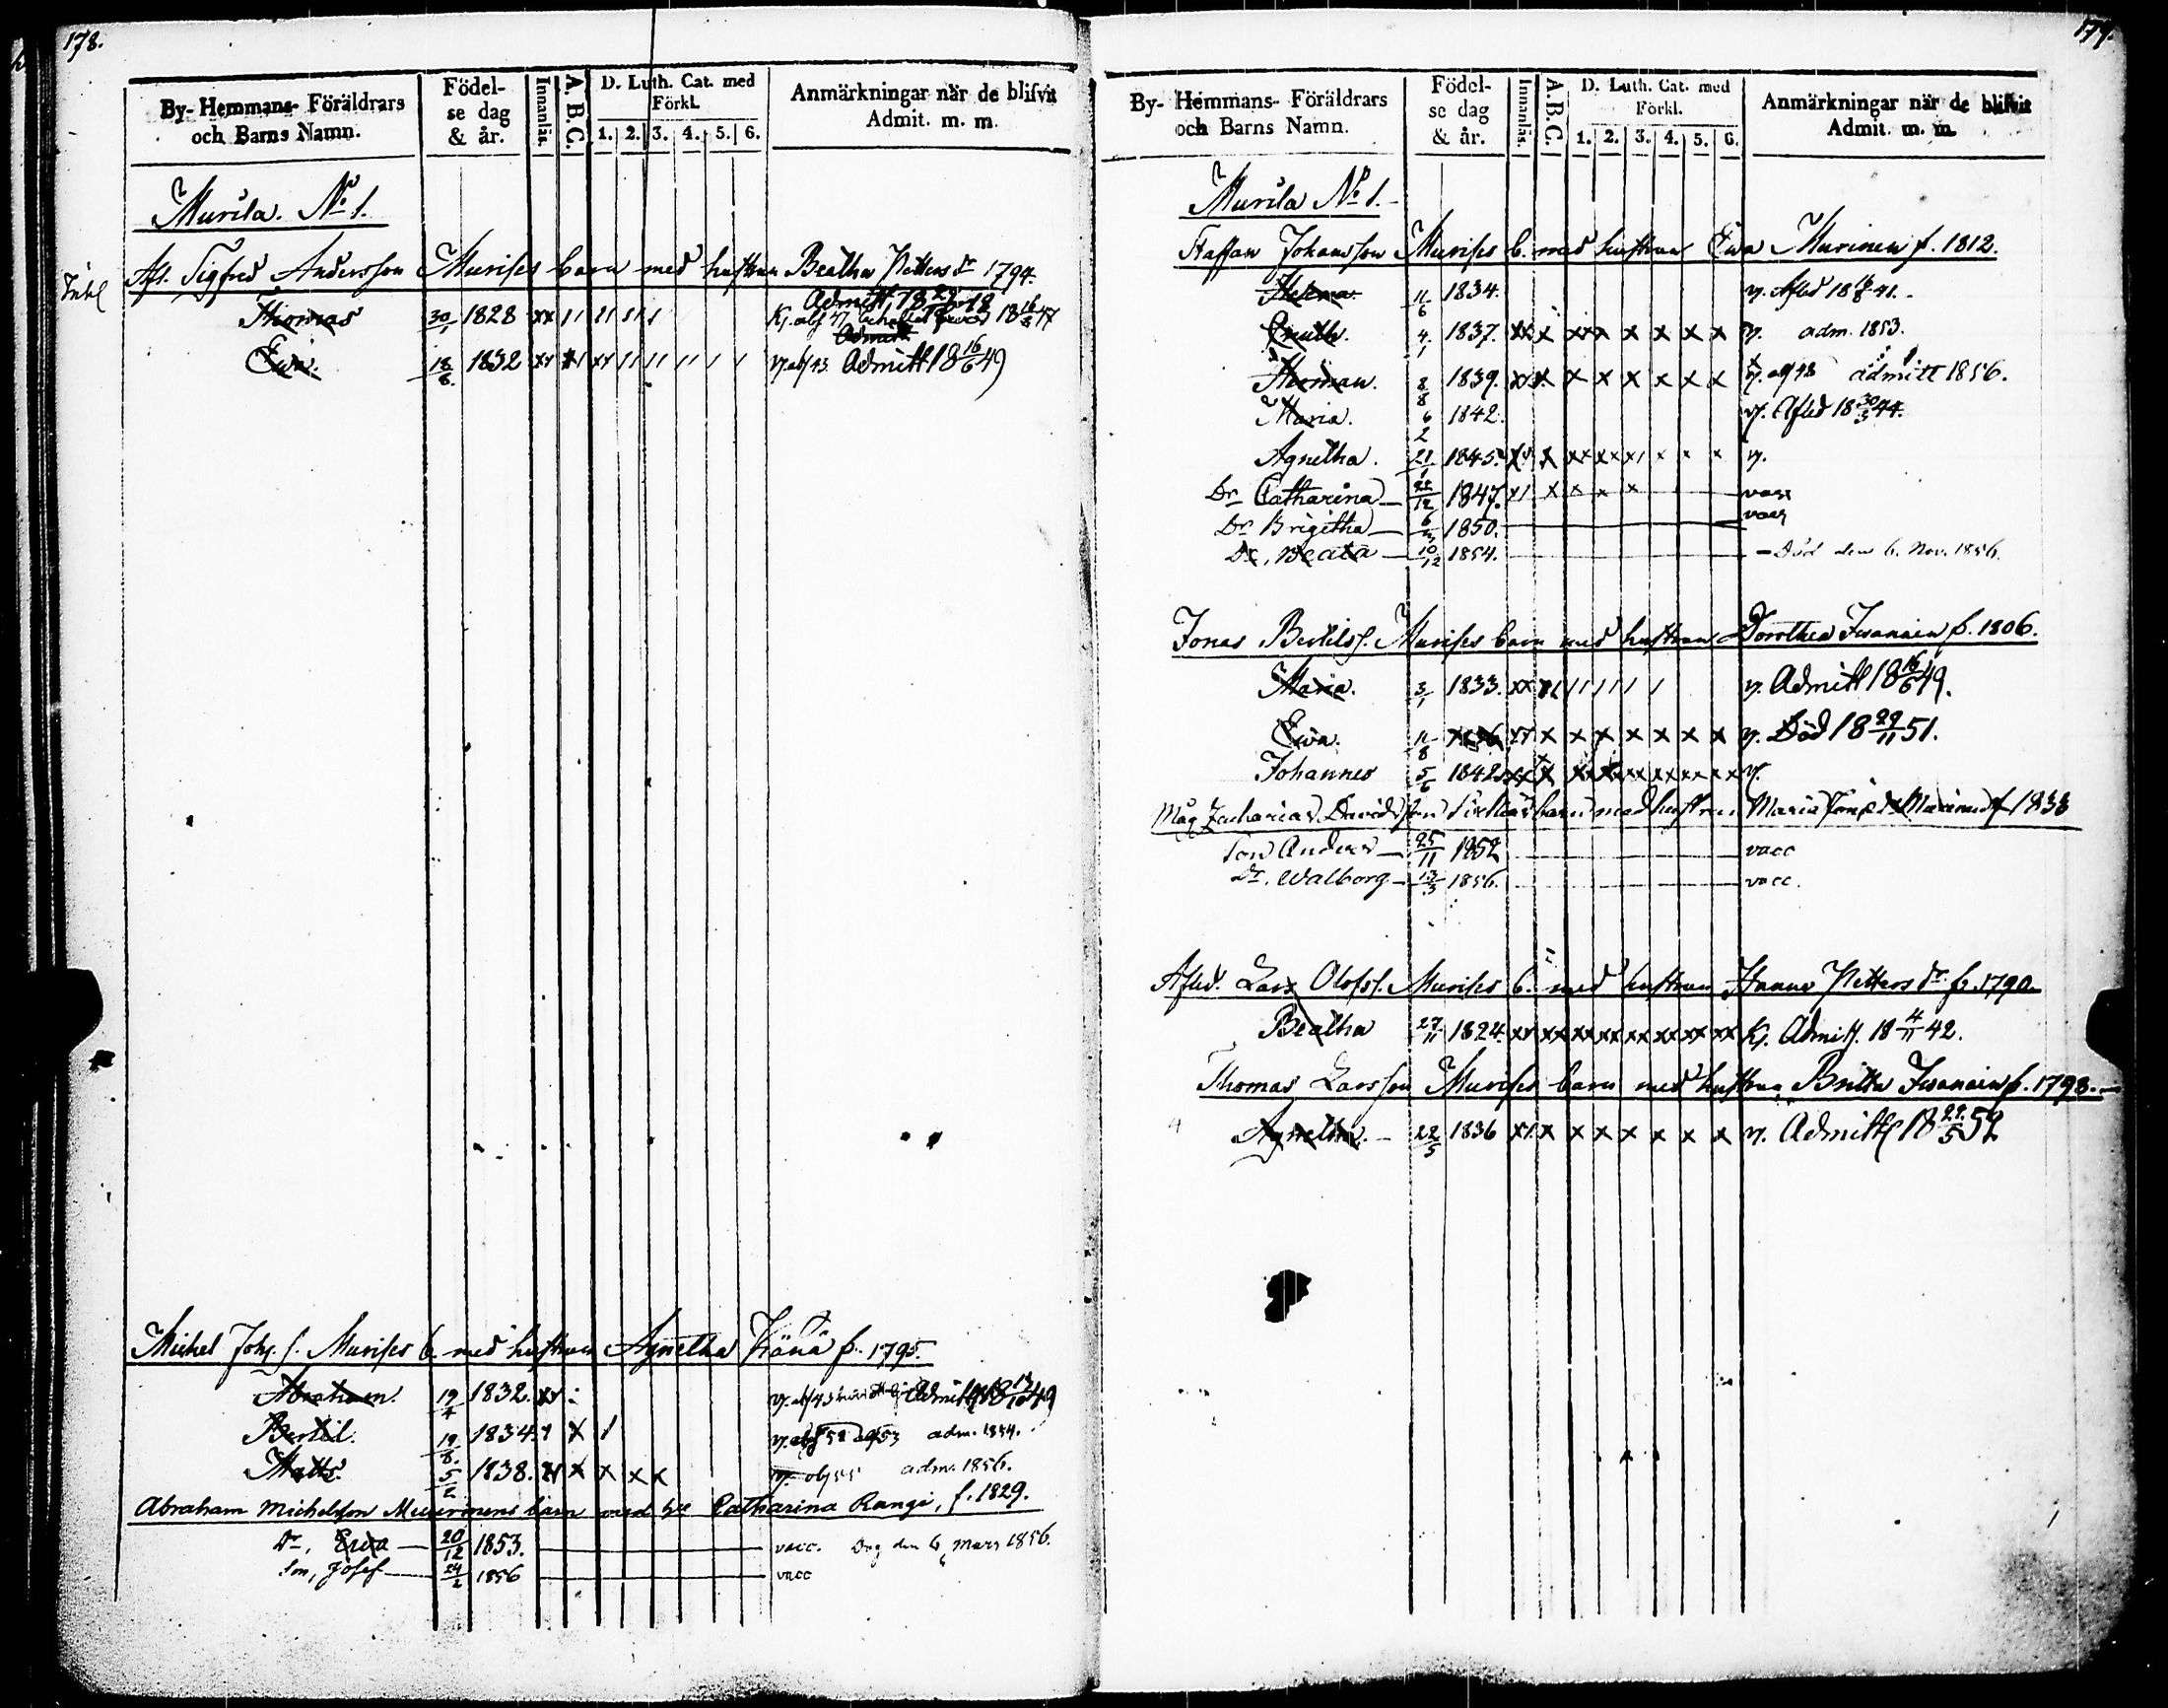 178.
By- Hemmans- Föräldrars och Barns Namn.
Födel- se dag & år.
Innanläs.
A. B. C.
D. Luth. Cat. med Förkl.
1. 2. 3. 4. 5. 6.
Anmärkningar når de blifvit Admit. m. m.
Murila. No 1.
Afl. Sigfred Andersson Murises barn med hustrun Beatha Petters dr 1794.
Thomas 30/1 1828 xx
Ewa. 18/8. 1832 Admitt 18 16/6 49
Michel Joh. s. Murises b. med hustrun Agnetha f. 1795.
Abraham. 19/4 1832.
Bertil. 19/8. 1834. x adm. 1854.
Matts. 5/2 1838. x x x x adm. 1856.
Abraham Michelson Muurinens barn med Catharina Rangi, f. 1829.
Dr, Ewa 20/12 1853. vacc. Dog den 6 Mars 1856.
Son, Josef 24/2 1856 vacc
By- Hemmans- Föräldrars och Barns Namn.
Födel- se dag & år.
Innanläs.
A. B. C.
D. Luth. Cat. med Förkl.
1. 2. 3. 4. 5. 6.
Anmärkningar når de blifvit Admit. m. m.
Murila No 1.
Staffan Johansson Murises b. med hustrun Ewa Murinen f. 1812.
Helena 11/6 1834. v. Afled 18 41.
4/1 1837. xx x xxx x x x x x v. adm. 1853.
8/8 1839. x x x x x x v. admitt 1856.
Maria. 6/2 1842. v. Afled 18 30/3 44.
Agnetha. 21/1 1845. x xx xx x x x x v.
Dr Catharina 1847. x x x x vacc
Dr Brigitha 1850. vacc
Dr, Beata 10/12 1854. Död den 6. Nov. 1856.
Jonas Bertils s. Murises barn med hustrun Dorothea Iivanain f. 1806.
Maria. 3/1 1833. xx v. Admitt 18 16/6 49.
Ewa. 11/8 x x x x x x x v. Död 18 29/11 51.
Johannes 5/6 1842 v.
Måg Zacharias Davidsson barn med hustrun Maria f 1833
Son Anders 25/11 1852 vacc
Dr. Walborg 13/3 1856. vacc.
Afled. Lars Olofs s. Murises b. med hustrun Hanna Petters dr f. 1790.
Beatha 27/11 1824. xx xx xx xx xx xx xx xx K. Admitt. 18 4/11 42.
Thomas Larsson Murises barn med hustrun Britta Iivanain f. 1793.
Agnetha. 22/5 1836 x x x x x x x v. Admitt 18 29/5 52